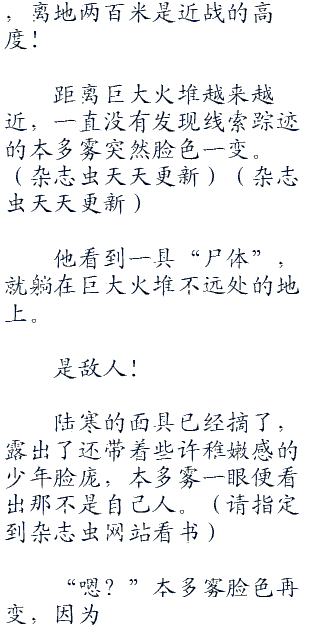 ，离地两百米是近战的高
度！
距离巨大火堆越来越
近，一直没有发现线索踪迹
的本多雾突然脸色一变。
（杂志虫天天更新）（杂志
虫天天更新）
他看到一具“尸体”，
就躺在巨大火堆不远处的地
上。
是敌人！
陆寒的面具已经摘了，
露出了还带着些许稚嫩感的
少年脸庞，本多雾一眼便看
出那不是自己人。（请指定
到杂志虫网站看书）
“嗯？”本多雾脸色再
变，因为